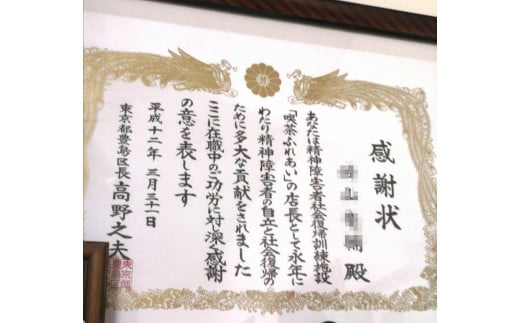 感謝状
殿
あなたは精神障害者社会復帰訓練施設
「喫茶ふれあい」の店長として永年に
わたり精神障害者の自立と社会復帰の
ために多大な貢献をされました
ここに在職中のご功労に対し深く感謝
の意を表します
平成十二年三月三十一日
東京都豊島区長 高野之夫